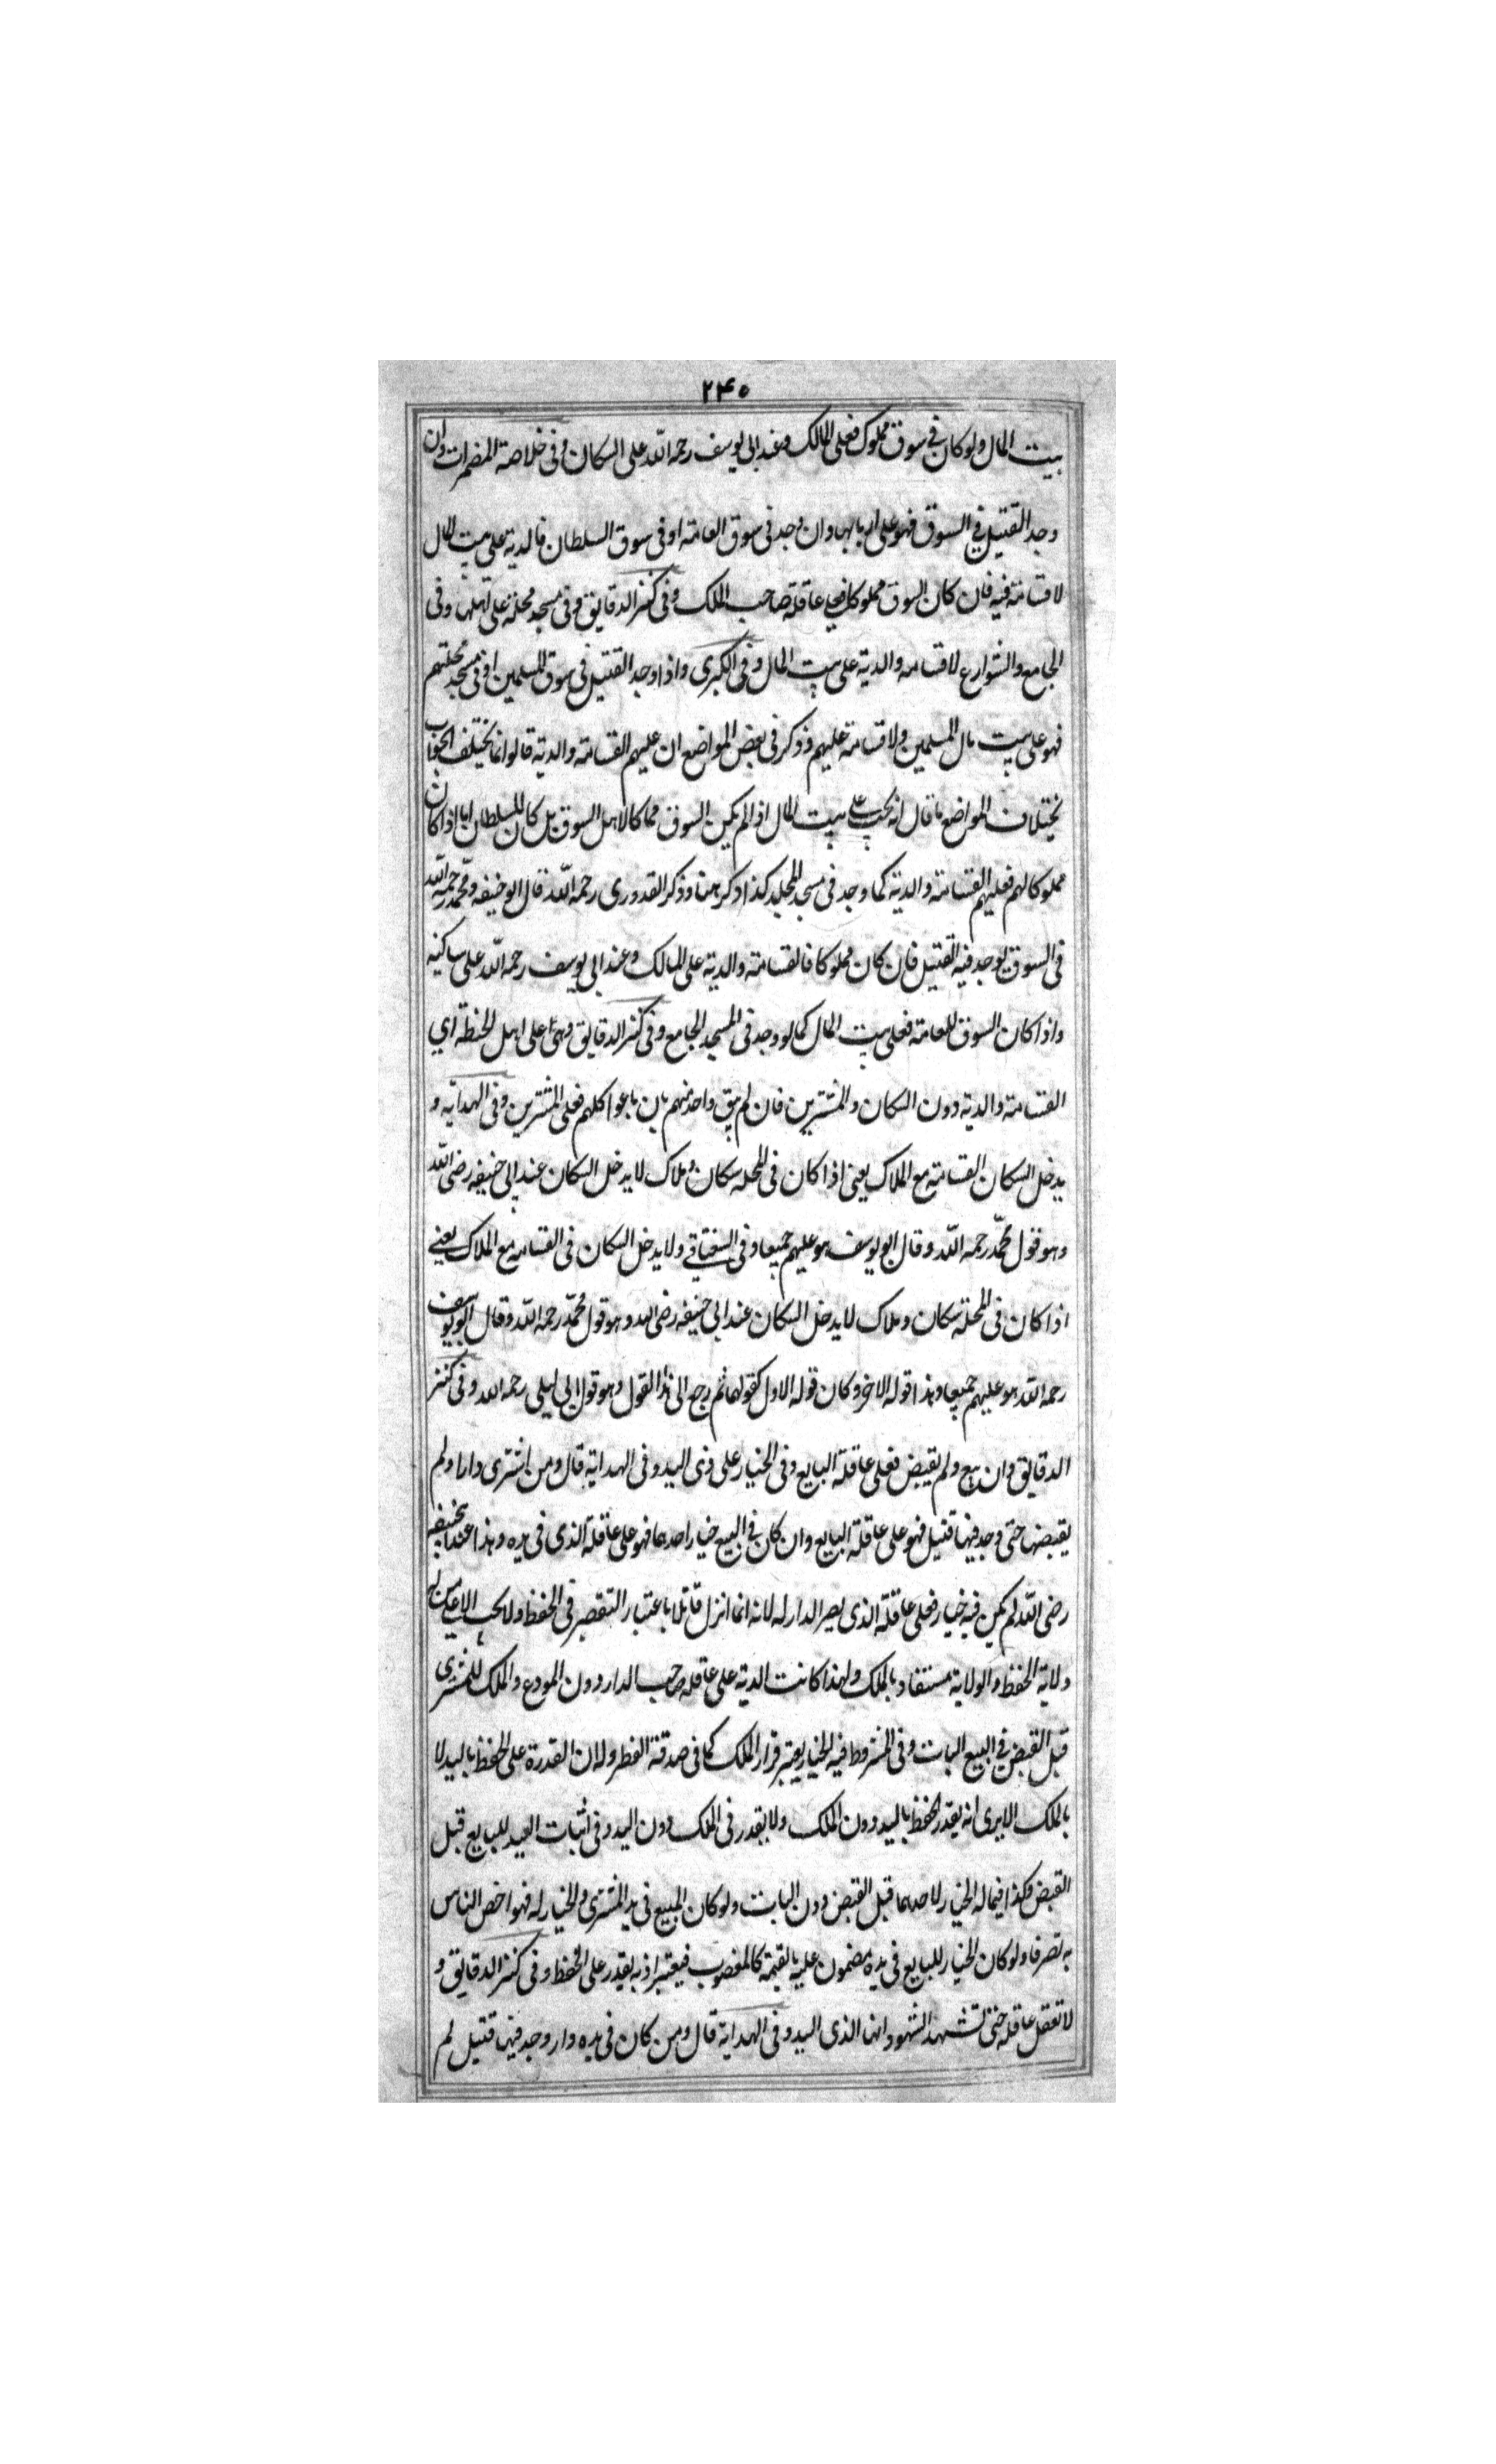 ۲۴۰
بيت المال ولو كان فى سوق مملوك فعلى المالك وعند ابى يوسف رحمه الله على السكان وفى خلاصة المضمرات وان
وجد القتيل فى السوق فهو على اربابها وان وجد فى سوق العامة او فى سوق السلطان فالدية على بيت المال
لا قسامة فيه فان كان السوق مملوكا فعلى عاقلة صاحب الملك وفى كنز الدقايق وفى مسجد محلة على اهلها وفى
الجامع والشوارع لا قسامه والدية على بيت المال وفى الكبرى واذا وجد القتيل فى سوق المسلمين او فى مسجد محلتهم
فهو على بيت مال المسلمين ولا قسامة عليهم وذكر فى بعض المواضع ان عليهم القسامة والدية قالوا انما يختلف الجواب
باختلاف المواضع ما قال انه يجب على بيت المال اذا لم يكن السوق مملوكا لاهل السوق بل كان للسلطان اما اذا كان
مملوكا لهم فعليهم القسامة والدية كما وجد فى مسجد المحلة كذا ذكر هنا وذكر القدورى رحمه الله قال ابو حنيفه ومحمد رحمهم الله
فى السوق يوجد فيه القتيل فان كان مملوكا فالقسامة والدية على المالك وعند ابى يوسف رحمه الله على ساكنيه
واذا كان السوق للعامة فعلى بيت المال كما لو وجد فى المسجد الجامع وفى كنز الدقايق وهى على اهل الخطة اى
القسامة والدية دون السكان والمشترين فان لم يبق واحد منهم بان باعوا كلهم فعلى المشترين وفى الهداية و
يدخل السكان القسامة مع الملاك يعنى اذا كان فى المحله سكان وملاك لا يدخل السكان عند ابى حنيفه رضى الله
وهو قول محمد رحمه الله وقال ابو يوسف هو عليهم جميعا وفى السغناقى ولا يدخل السكان فى القسامه مع الملاك يعنى
اذا كان فى المحلة سكان وملاك لا يدخل السكان عند ابى حنيفه رضى الله وهو قول محمد رحمه الله وقال ابو يوسف
رحمه الله هو عليهم جميعا وهذا قوله الاخر وكان قوله الاول كقولهما ثم رجع الى هذا القول وهو قول ابى ليلى رحمه الله وفى كنز
الدقايق وان بيع ولم يقبض فعلى عاقلة البايع وفى الخيار على ذى اليد وفى الهداية قال ومن اشترى دارا ولم
يقبضها حتى وجد فيها قتيل فهو على عاقلة البايع وان كان فى البيع خيار احدهما فهو على عاقلة الذى فى يده وهذا عند ابى حنيفه
رضى الله لم يكن فيه خيار فعلى عاقلة الذى يصير الدار له لانه انما انزل قاتلا باعتبار التقصير فى الحفظ ولا يجب الا على من له
ولاية الحفظ والولاية مستفاد بالملك ولهذا كانت الدية على عاقله صاحب الدار دون المودع والملك للمشترى
قبل القبض فى البيع البات وفى المشروط فيه الخيار يعتبر قرار الملك كما فى صدقة الفطر ولان القدرة على الحفظ باليد لا
بالملك الا يرى انه يقدر الحفظ باليد دون الملك ولا يقدر فى الملك دون اليد وفى اثبات اليد للبايع قبل
القبض وكذا فيما له الخيار لاحدهما قبل القبض دون البات ولو كان المبيع فى يد المشترى والخيار له فهو اخص الناس
به تصرفا ولو كان الخيار للبايع فى يده مضمون عليه بالقيمة كالمغصوب فيعتبر اذ به يقدر على الحفظ وفى كنز الدقايق و
لا تعقل عاقله حتى تشهد الشهود انها الذى اليد وفى الهداية قال ومن كان فى يده دار وجد فيها قتيل لم